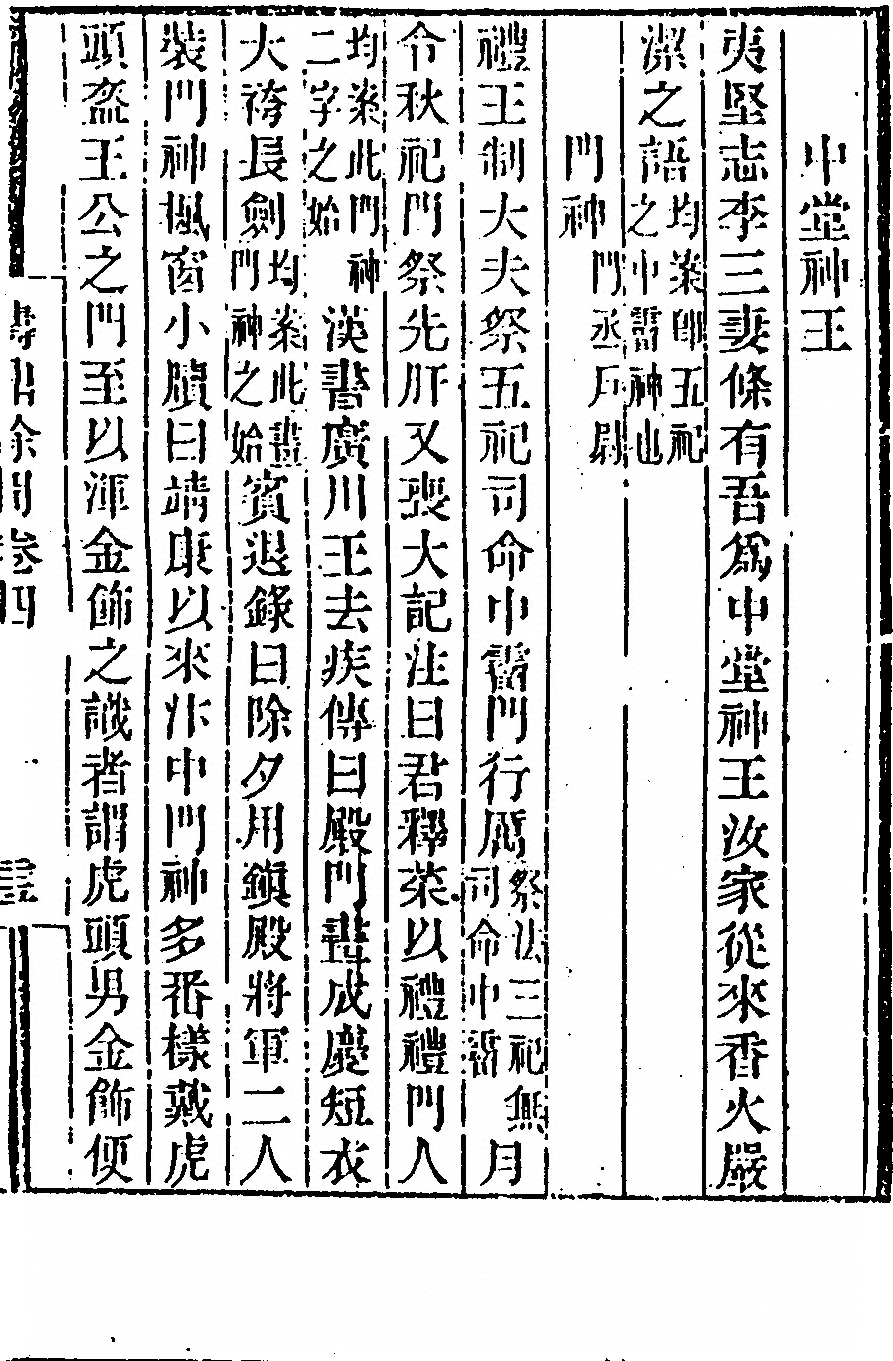 中堂神王
夷堅志李三妻條有吾爲中堂神王汝家從來香火嚴
潔之語均案卽五祀之中霤神也
門神門丞戶尉
禮王制大夫祭五祀司命中霤門行厲祭法三祀無司命中霤月
令秋祀門祭先肝又喪大記注曰君釋菜以禮禮門人
均案此門神二字之始漢書廣川王去疾傳曰殿門畫成慶短衣
大袴長劍均案此畫門神之始賓退錄曰除夕用鎮殿將軍二人
裝門神楓窗小牘曰靖康以來汴中門神多番樣戴虎
頭盔王公之門至以渾金飾之識者謂虎頭男金飾便
卷四